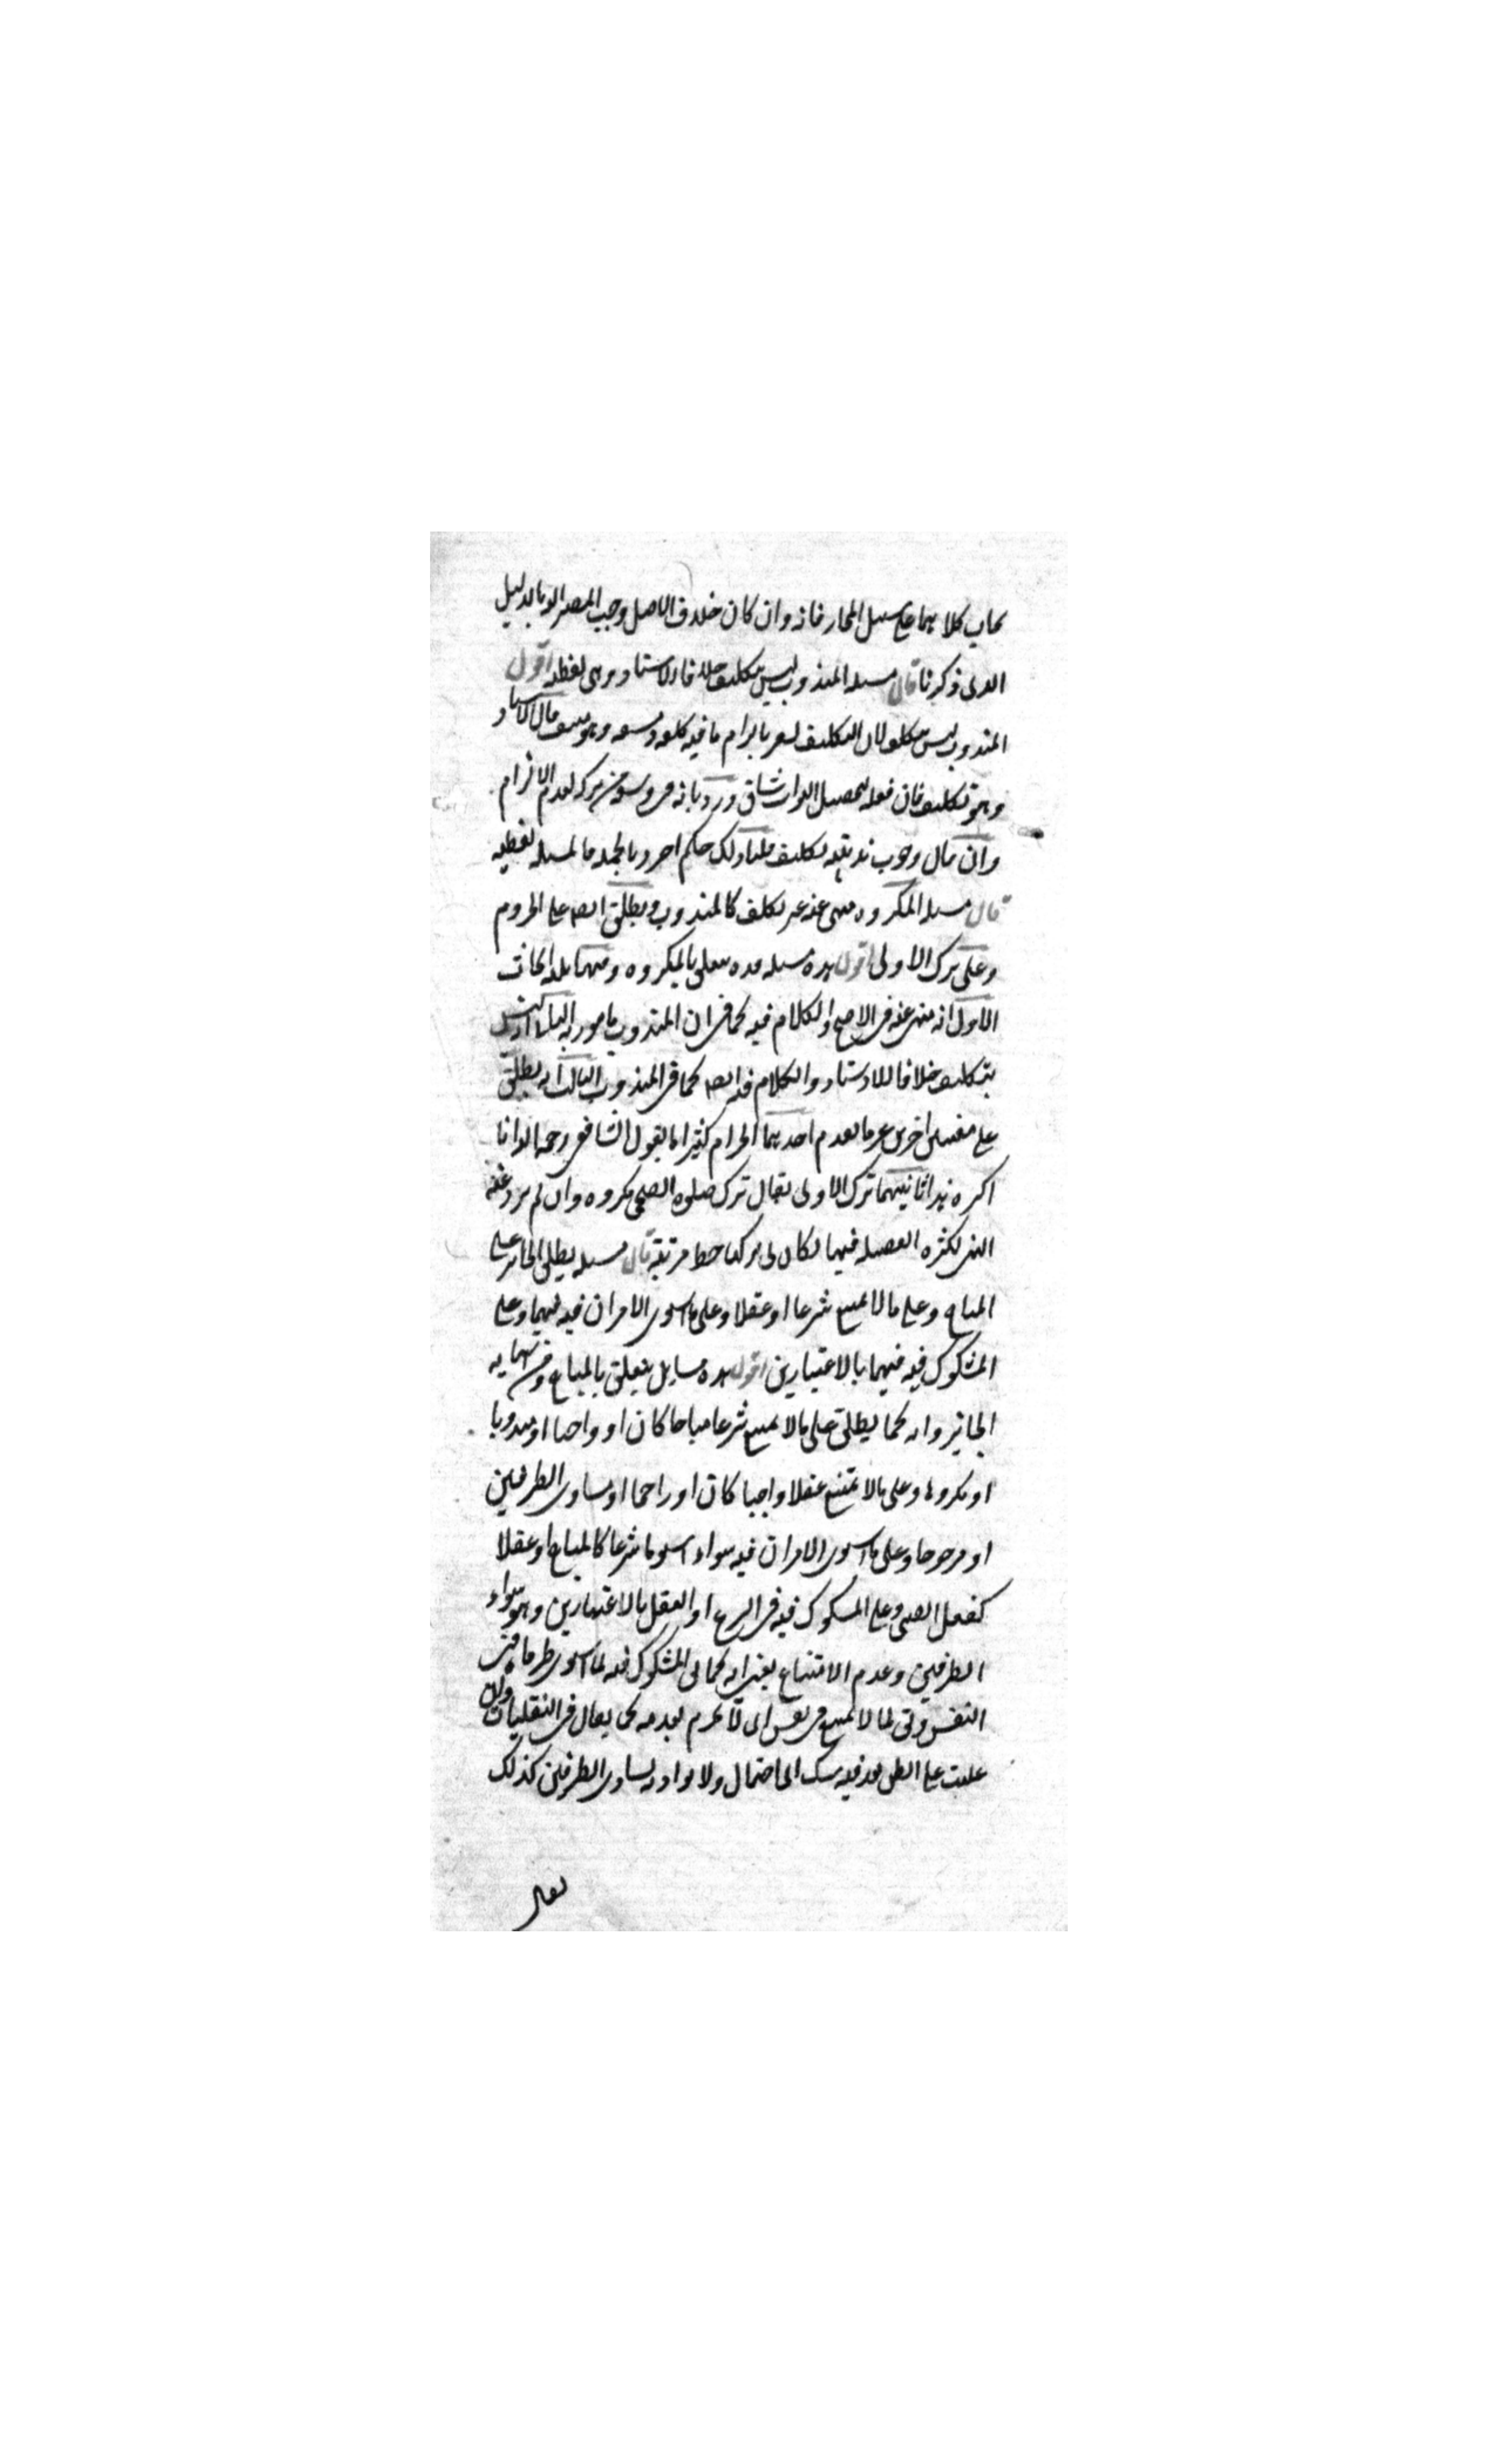 يجاب كلاهما على سبيل المجاز فانه وان كان خلاف الاصل وجب المصير اليه بالدليل
الدى ذكرنا قال مسله المندوب ليس بتكليف خلافا للاستاد وهى لفظيه اقول
المندوب ليس بتكليف لان التكليف يشعر بالزام ما فيه كلفه ومشقه وهو منتف قال الاستاد
وهو تكليف فان فعله لتحصيل الثواب شاق ورد بانه فى سعه من تركه لعدم الالزام
وان قال وجوب ندبيته تكليف قلنا ذلك حكم اخر وبالجمله فالمسله لفظيه
قال مسله المكروه منهى عنه غير تكليف كالمندوب ويطلق ايضا على الحرام
وعلى ترك الاولى اقول هده مسله مده تتعلق بالمكروه وفيها ثلثه ابحاث
الاول انه منهى عنه فى الاصح والكلام فيه كما فى ان المندوب مامور به الثانى انه ليس
بتكليف خلافا للاستاد والكلام فيه ايضا كما فى المندوب الثالث انه يطلق
على معنيين اخرين غير ما تقدم احدهما الحرام كثيرا ما يقول الشافعى رحمه الله انا
اكره هذا ثانيهما ترك الاولى يقال ترك صلوه الضحى مكروه وان لم يرد عنه
النهى لكثره الفضيله فيها فكان فى تركها حط مرتبه قال مسله يطلق الجائز على
المباح وعلى مالا يمتنع شرعا او عقلا وعلى ما استوى الامران فيه فيهما وعلى
المشكوك فيه فيهما بالاعتبارين اقول هده مسايل تتعلق بالمباح ومن اسمايه
الجائز وانه كما يطلق على مالا يمتنع شرعا مباحا كان او واجبا او مندوبا
او مكروها وعلى مالا يمتنع عقلا واجبا كان او راجحا او مساوى الطرفين
او مرجوحا وعلى ما استوى الامران فيه سواء استويا شرعا كالمباح او عقلا
كفعل الصبى وعلى المشكوك فيه فى الشرع او العقل بالاعتبارين وهو استواء
الطرفين وعدم الامتناع يعنى انه كما ان المشكوك فيه لما استوى طرفاه فى
النفس وفى لما لا يمتنع فى نفس اى لا نجزم بعدمه كما يقال فى النقليات وان
غلبت على الظن بعد فيه شك اى احتمال ولا يراد به تساوى الطرفين كذلك
يقال